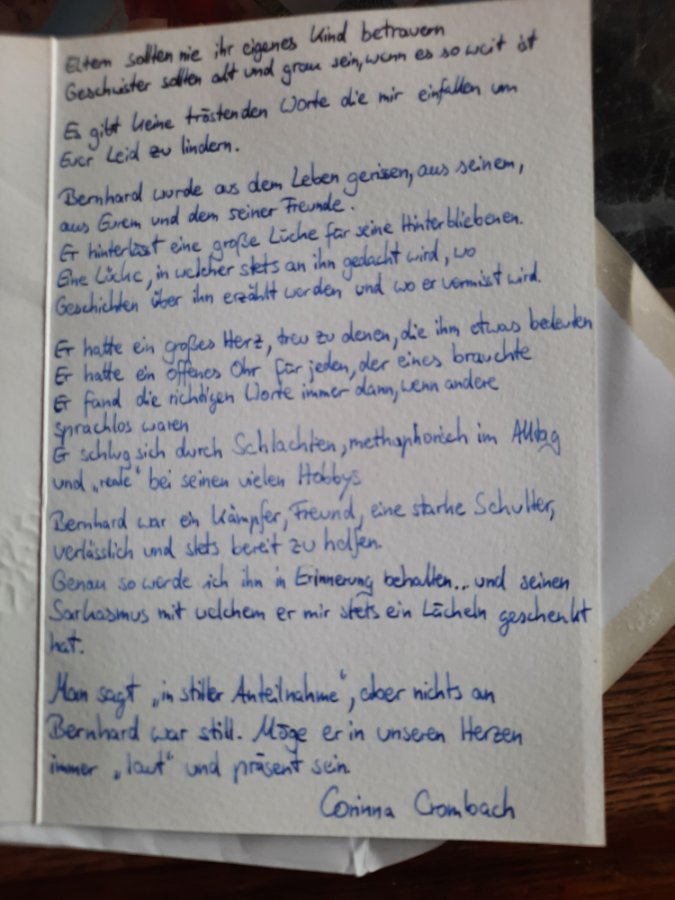 Eltern sollten nie ihr eigenes Kind betrauern
Geschwister sollten alt und grau sein, wenn es so weit ist
Es gibt keine tröstenden Worte die mir einfallen um
Euer Leid zu lindern.
Bernhard wurde aus dem Leben gerissen, aus seinem,
aus Eurem und dem seiner Freunde.
Er hinterlässt eine große Lücke für seine Hinterbliebenen.
Eine Lücke, in welcher stets an ihn gedacht wird, wo
Geschichten über ihn erzählt werden und wo er vermisst wird.
Er hatte ein großes Herz, treu zu denen, die ihm etwas bedeuten
Er hatte ein offenes Ohr für jeden, der eines brauchte
Er fand die richtigen Worte immer dann, wenn andere
sprachlos waren
Er schlug sich durch Schlachten, methaphorisch im Alltag
und „reale" bei seinen vielen Hobbys
Bernhard war ein Kämpfer, Freund, eine starke Schulter,
verlässlich und stets bereit zu helfen.
Genau so werde ich ihn in Erinnerung behalten... und seinen
Sarkasmus mit welchem er mir stets ein Lächeln geschenkt
hat.
Man sagt „in stiller Anteilnahme", aber nichts an
Bernhard war still. Möge er in unseren Herzen
immer „laut" und präsent sein.
Corinna Crombach